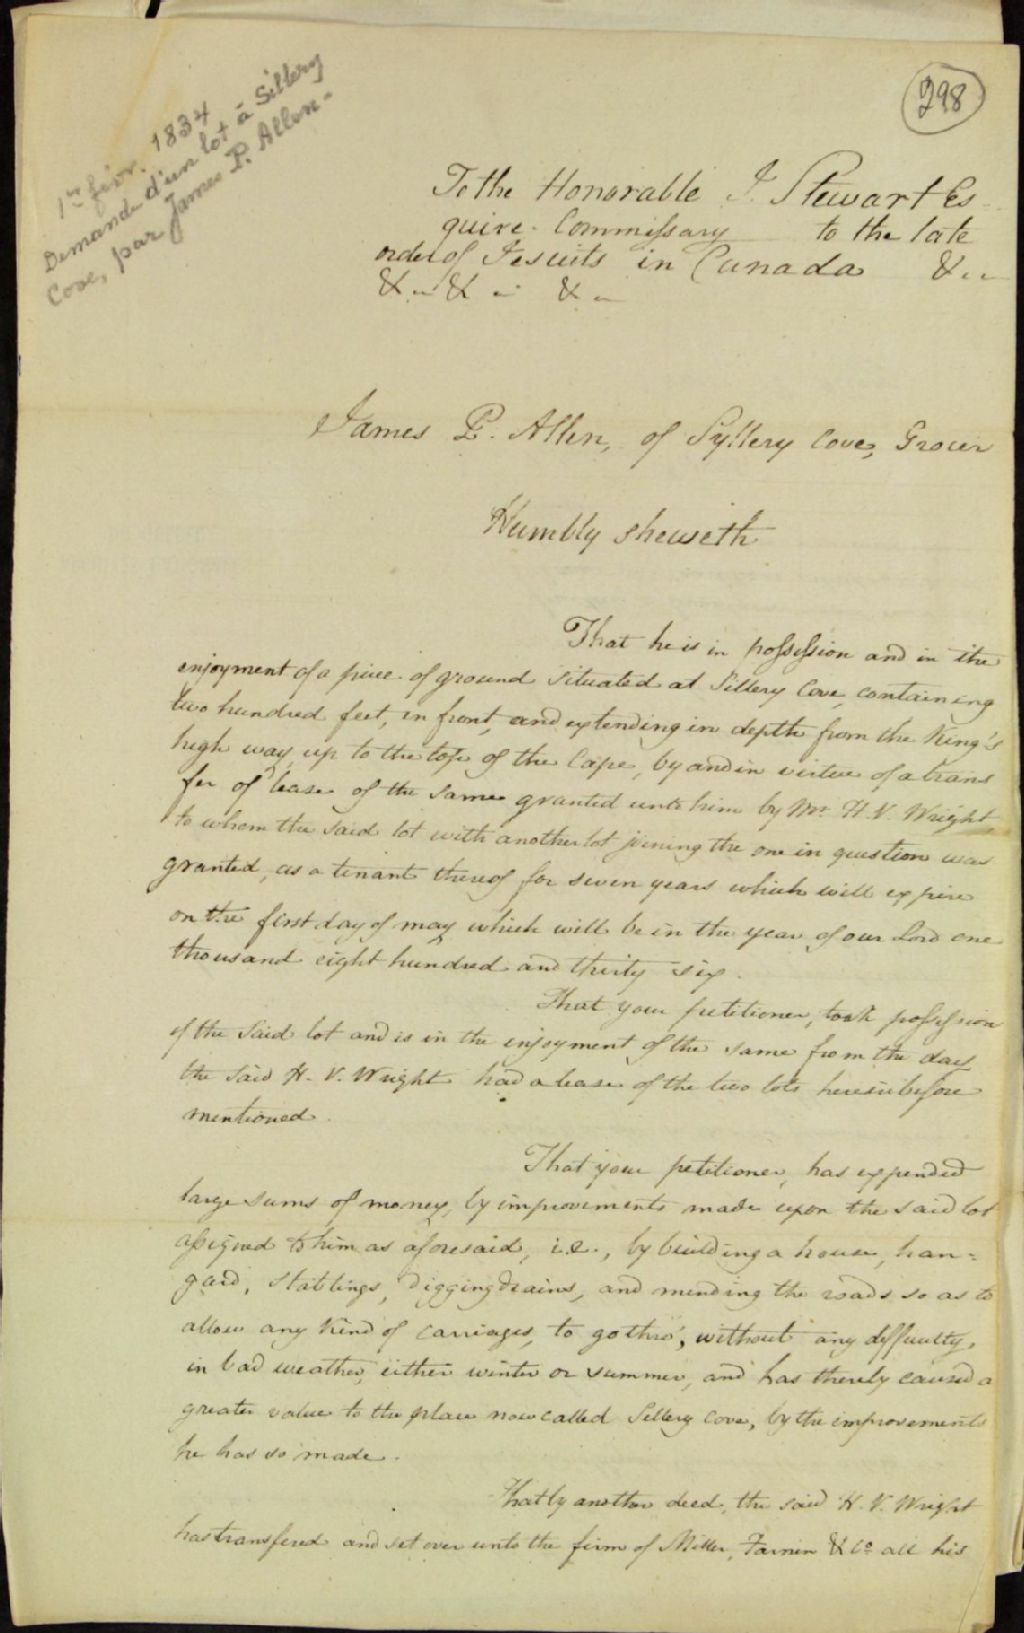 298
1er févr. 1834
Demande d'un lot à Sillery
Cove, par James P. Allen-
To the Honorable J. Stewart Es-
quire. Commissary to the late
order of Jesuits in Canada &..
&.. & .. & ..
James P. Allen, of Syllery Cove, Grocer
Humbly sheweth
That he is in possession and in the
enjoyment of a piece of ground situated at Sillery Cove, containing
two hundred feet, in front, and extending in depth from the King's
high way, up to the top of the Cape, by and in virtue of a trans
fer of lease of the same granted unto him by Mr. H. V. Wright,
to whom the said lot with another lot joining the one in question was
granted, as a tenant thereof for seven years which will expire
on the first day of may which will be in the year of our Lord one
thousand eight hundred and thirty six.
That your petitioner, took possession
of the said lot and is in the enjoyment of the same from the day
the said H. V. Wright had a lease of the two lots hereinbefore
mentioned.
That your petitioner, has expended
large sums of money, by improvements made upon the said lot
assigned to him as aforesaid, i.e., by building a house, han=
gard, stablings, digging drains, and mending the roads so as to
allow any kind of carriages, to go thro', without any difficulty,
in bad weather, either winter or summer, and has thereby caused a
greater value to the place now called Sillery Cove, by the improvements
he has so made.
That by another deed, the said H. V. Wright
has transfered and set over unto the firm of Miller, Farnin & Co. all his